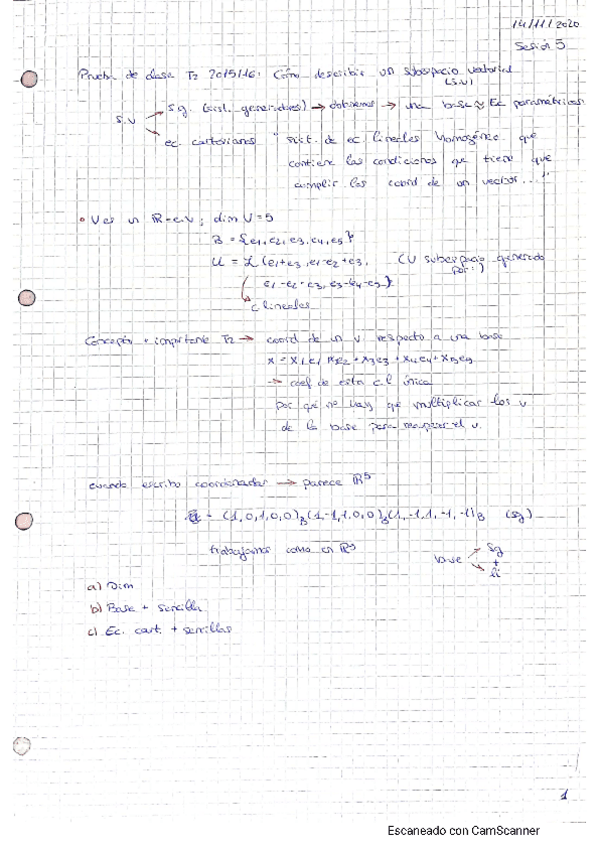 14/11/2020
Sesión 5
Prueba de clase T2 2015/16: Cómo describir un subespacio vectorial
(S.V)
s.v → s.g. (sist. generadores) → obtenemos → una base ≈ Ec paramétricas
→ ec. cartesianas " sist. de ec lineales homogéneo que
contiene las condiciones que tiene que
cumplir las coord de un vector..."
• V es un R-e.V; dim V=5
B = {e1, e2, e3, e4, e5}
U = L(e1+e3, e1-e2+e3, (U subespacio generado
por:)
e1-e2+e3, e3-e4-e5)
c lineales
Concepto + importante T2 → coord de un v respecto a una base
x = x1e1 + x2e2 + x3e3 + x4e4 + x5e5
→ coef de esta c.l única
por qué no hay que multiplicar los v
de la base para recuperar el v.
cuando escribo coordenadas → parece R5
(1,0,1,0,0)B (1,-1,1,0,0)B (1,-1,1,-1,-1)B (sg)
trabajamos como en R5
base → Sg
+
→ li
a) Dim
b) Base + sencilla
c) Ec. cart. + sencillas
1
Escaneado con CamScanner